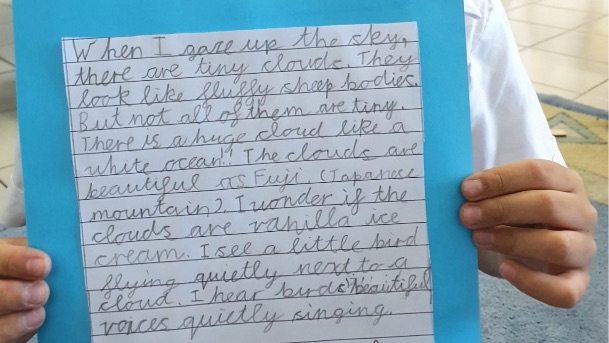 When I gaze up the sky,
there are tiny clouds. They
look like fluffy sheep bodies.
But not all of them are tiny.
There is a huge cloud like a
white ocean!! The clouds are
beautiful as Fuji. (Japanese
mountain). I wonder if the
clouds are vanilla ice
cream. I see a little bird
flying quietly next to a
cloud. I hear birds' beautiful
voices quietly singing.